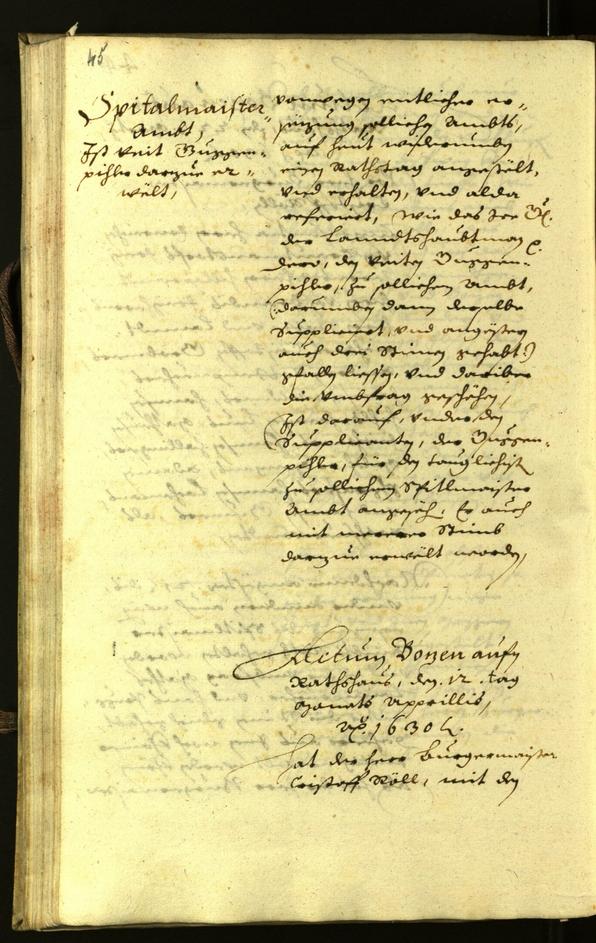 45
Spitalmaister
Ambt,
Ist Veit Guggen-
pihler darzue er-
wölt,
vonwegen entlicher er-
sezung solliches Ambts,
auf heut widerumben
einen Rathstag angestölt,
vnd erhalten, vnd alda
referiert, wie das der
der Lanndtshaubtman
den Veiten Guggen-
pihler, zu sollichem Ambt,
(darumben dann derselbe
Suppliciert, vnd
auch drei Stimen gehabt)
gfallen liessen, vnd dariber
die Vmbfrag geschehen,
Ist darauf, vnder den
Supplicanten, der Guggen-
pihler, für den tauglichist
zu sollichem Spitlmaister
Ambt angesech, Er auch
mit merer Stimb
darzue erwölt worden,
Actum Bozen aufm
Rathshaus, den 12. tag
Monats Apprillis,
Ao. 1630
Hat der Herr Burgermaister
Cristoff Röll, mit den